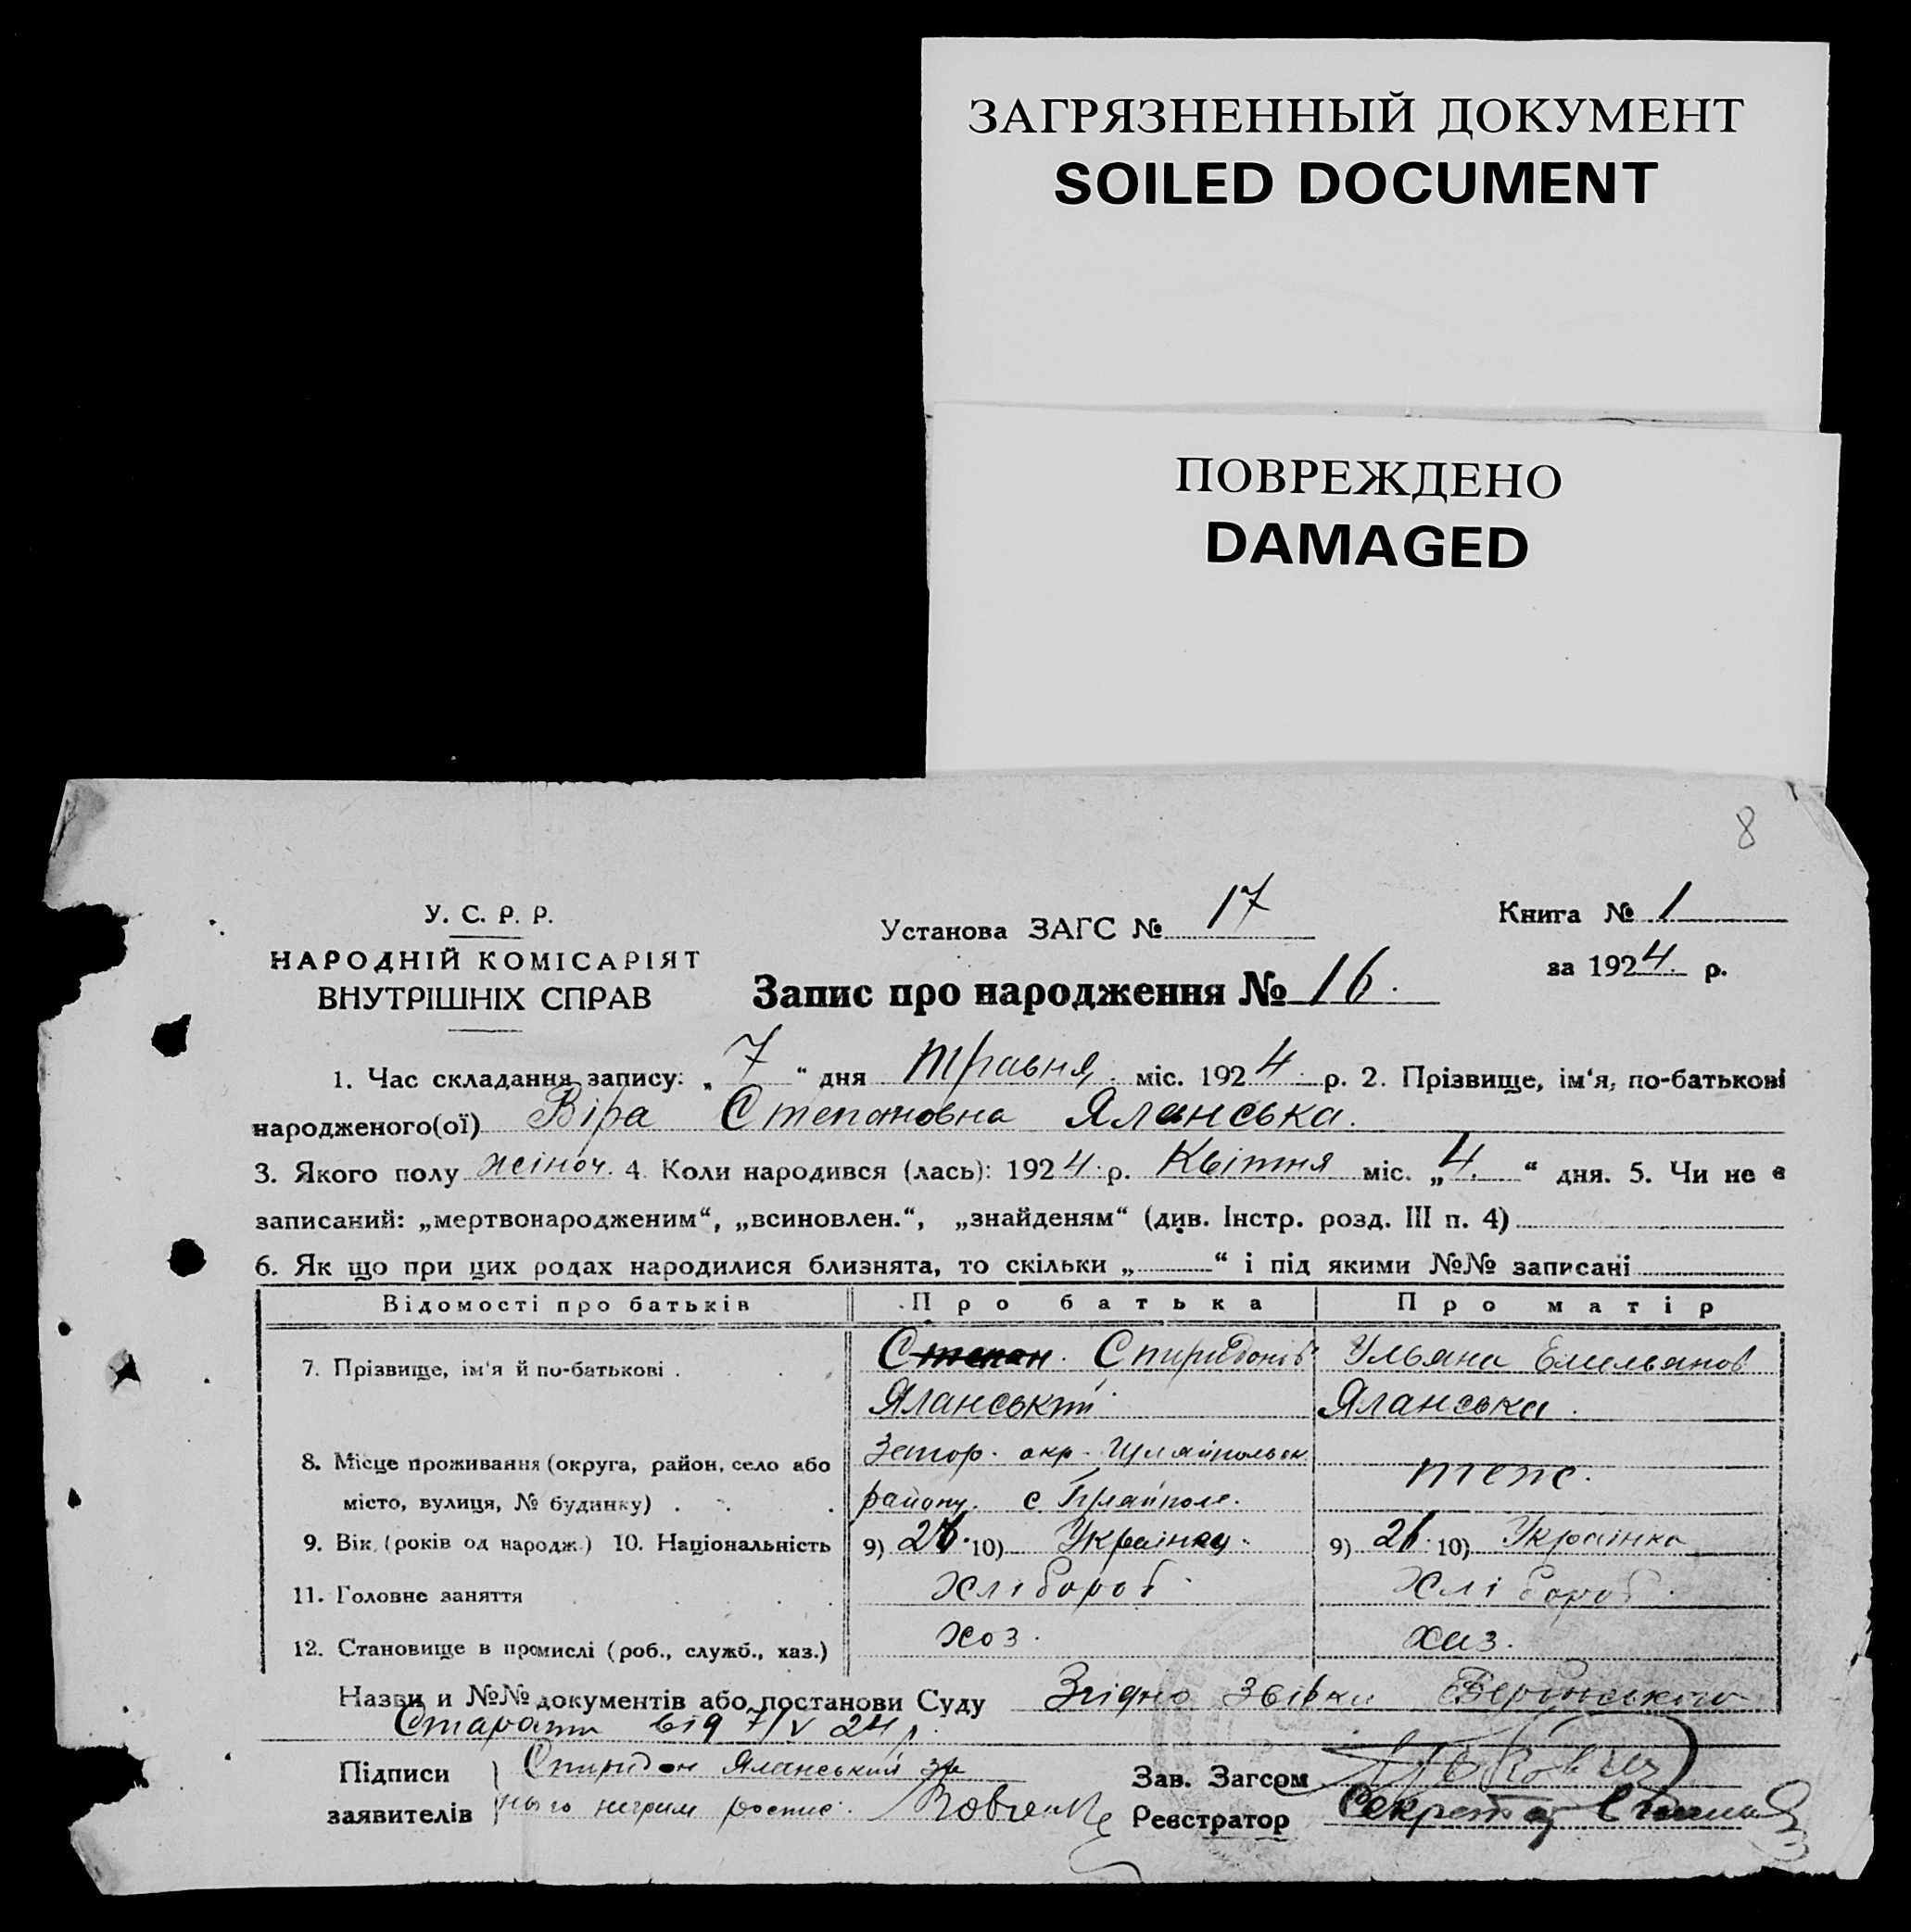 ЗАГРЯЗНЕННЫЙ ДОКУМЕНТ
SOILED DOCUMENT
ПОВРЕЖДЕНО
DAMAGED
8
У. С. Р. Р.
НАРОДНІЙ КОМІСАРІЯТ
ВНУТРІШНІХ СПРАВ
Установа ЗАГС № 17
Книга № 1
за 1924 р.
Запис про народження № 16.
1. Час складання запису: „ 7 “ дня травня міс. 1924 р. 2. Прізвище, ім‘я, по-батькові
народженого(ої) Віра Степановна Яланська.
3. Якого полу жіноч. 4. Коли народився (лась): 1924 р. Квітня міс. „ 4. “ дня. 5. Чи не є
записаний: „мертвонародженим“, „всиновлен.“, „знайденям“ (див. Інстр. розд. III п. 4)
6. Як що при цих родах народилися близнята, то скільки „ “ і під якими №№ записані
Відомості про батьків Про батька Про матір
7. Прізвище, ім‘я й по-батькові . Степан. Спиридонів Ульяна Емельянов
Яланський Яланська.
8. Місце проживання (округа, район, село або
місто, вулиця, № будинку) . району. с теж.
9. Вік (років од народж.) 10. Національність 9) 26. 10) Українец. 9) 26. 10) Українка
11. Головне заняття хлібороб. хлібороб.
12. Становище в промислі (роб., служб., хаз.) хоз. хаз.
Назви и №№ документів або постанови Суду Згідно
від 7/V 24 р.
Підписи Спиридон Яланський за
заявителів нього неграм роспис.
Зав. Загсом
Реєстратор Секретар